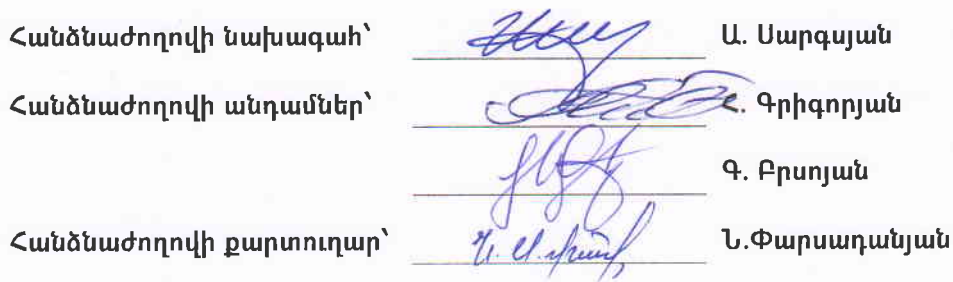 Հանձնաժողովի նախագահ՝ Ա. Սարգսյան
Հանձնաժողովի անդամներ՝ Հ. Գրիգորյան
Գ. Բրսոյան
Հանձնաժողովի քարտուղար՝ Ն.Փարսադանյան